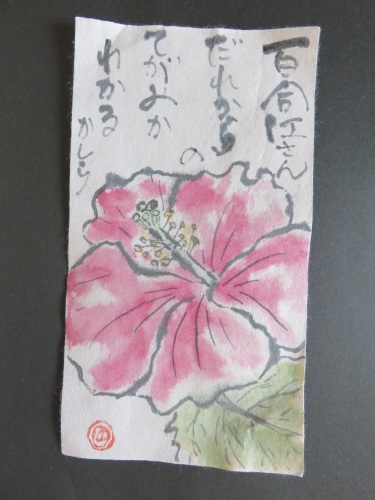 百合江さん
だれからの
てがみか
わかる
かしら